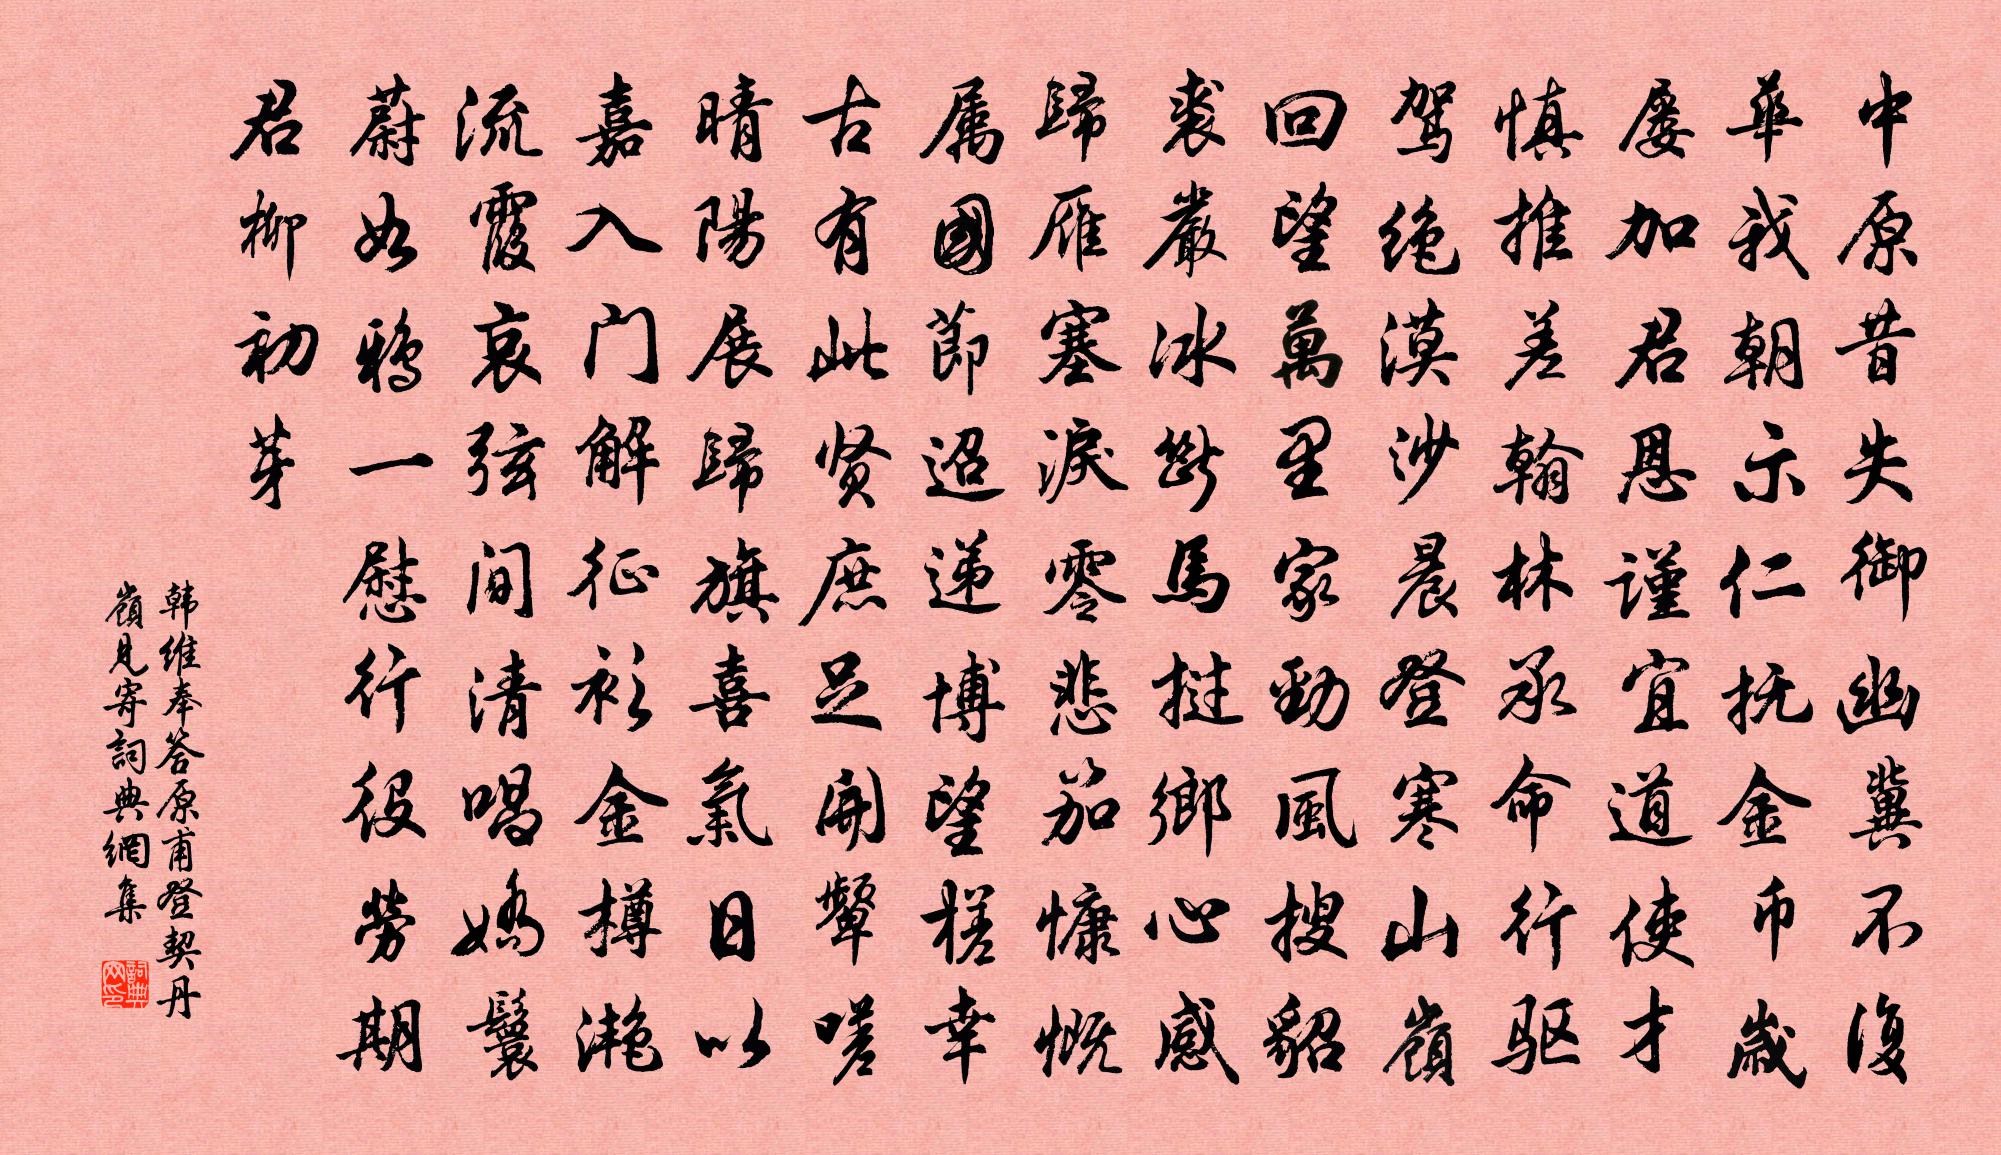 中原昔失御幽冀不復
華我朝示仁抚金币歲
屡加君恩谨宜道使才
慎推差翰林承命行驱
驾绝漠沙晨登寒山嶺
回望萬里家勁風搜貂
裘嚴冰斷馬挝鄉心感
歸雁塞淚零悲笳慷慨
属國節迢递博望槎幸
古有此贤庶足開顰嗟
晴陽展歸旗喜氣日以
嘉入门解征衫金樽滟
流霞哀弦间清唱嬌鬟
蔚如鴉一慰行役勞期
君柳初芽
韩维奉答原甫登契丹
嶺見寄詞典網集
詞典网印